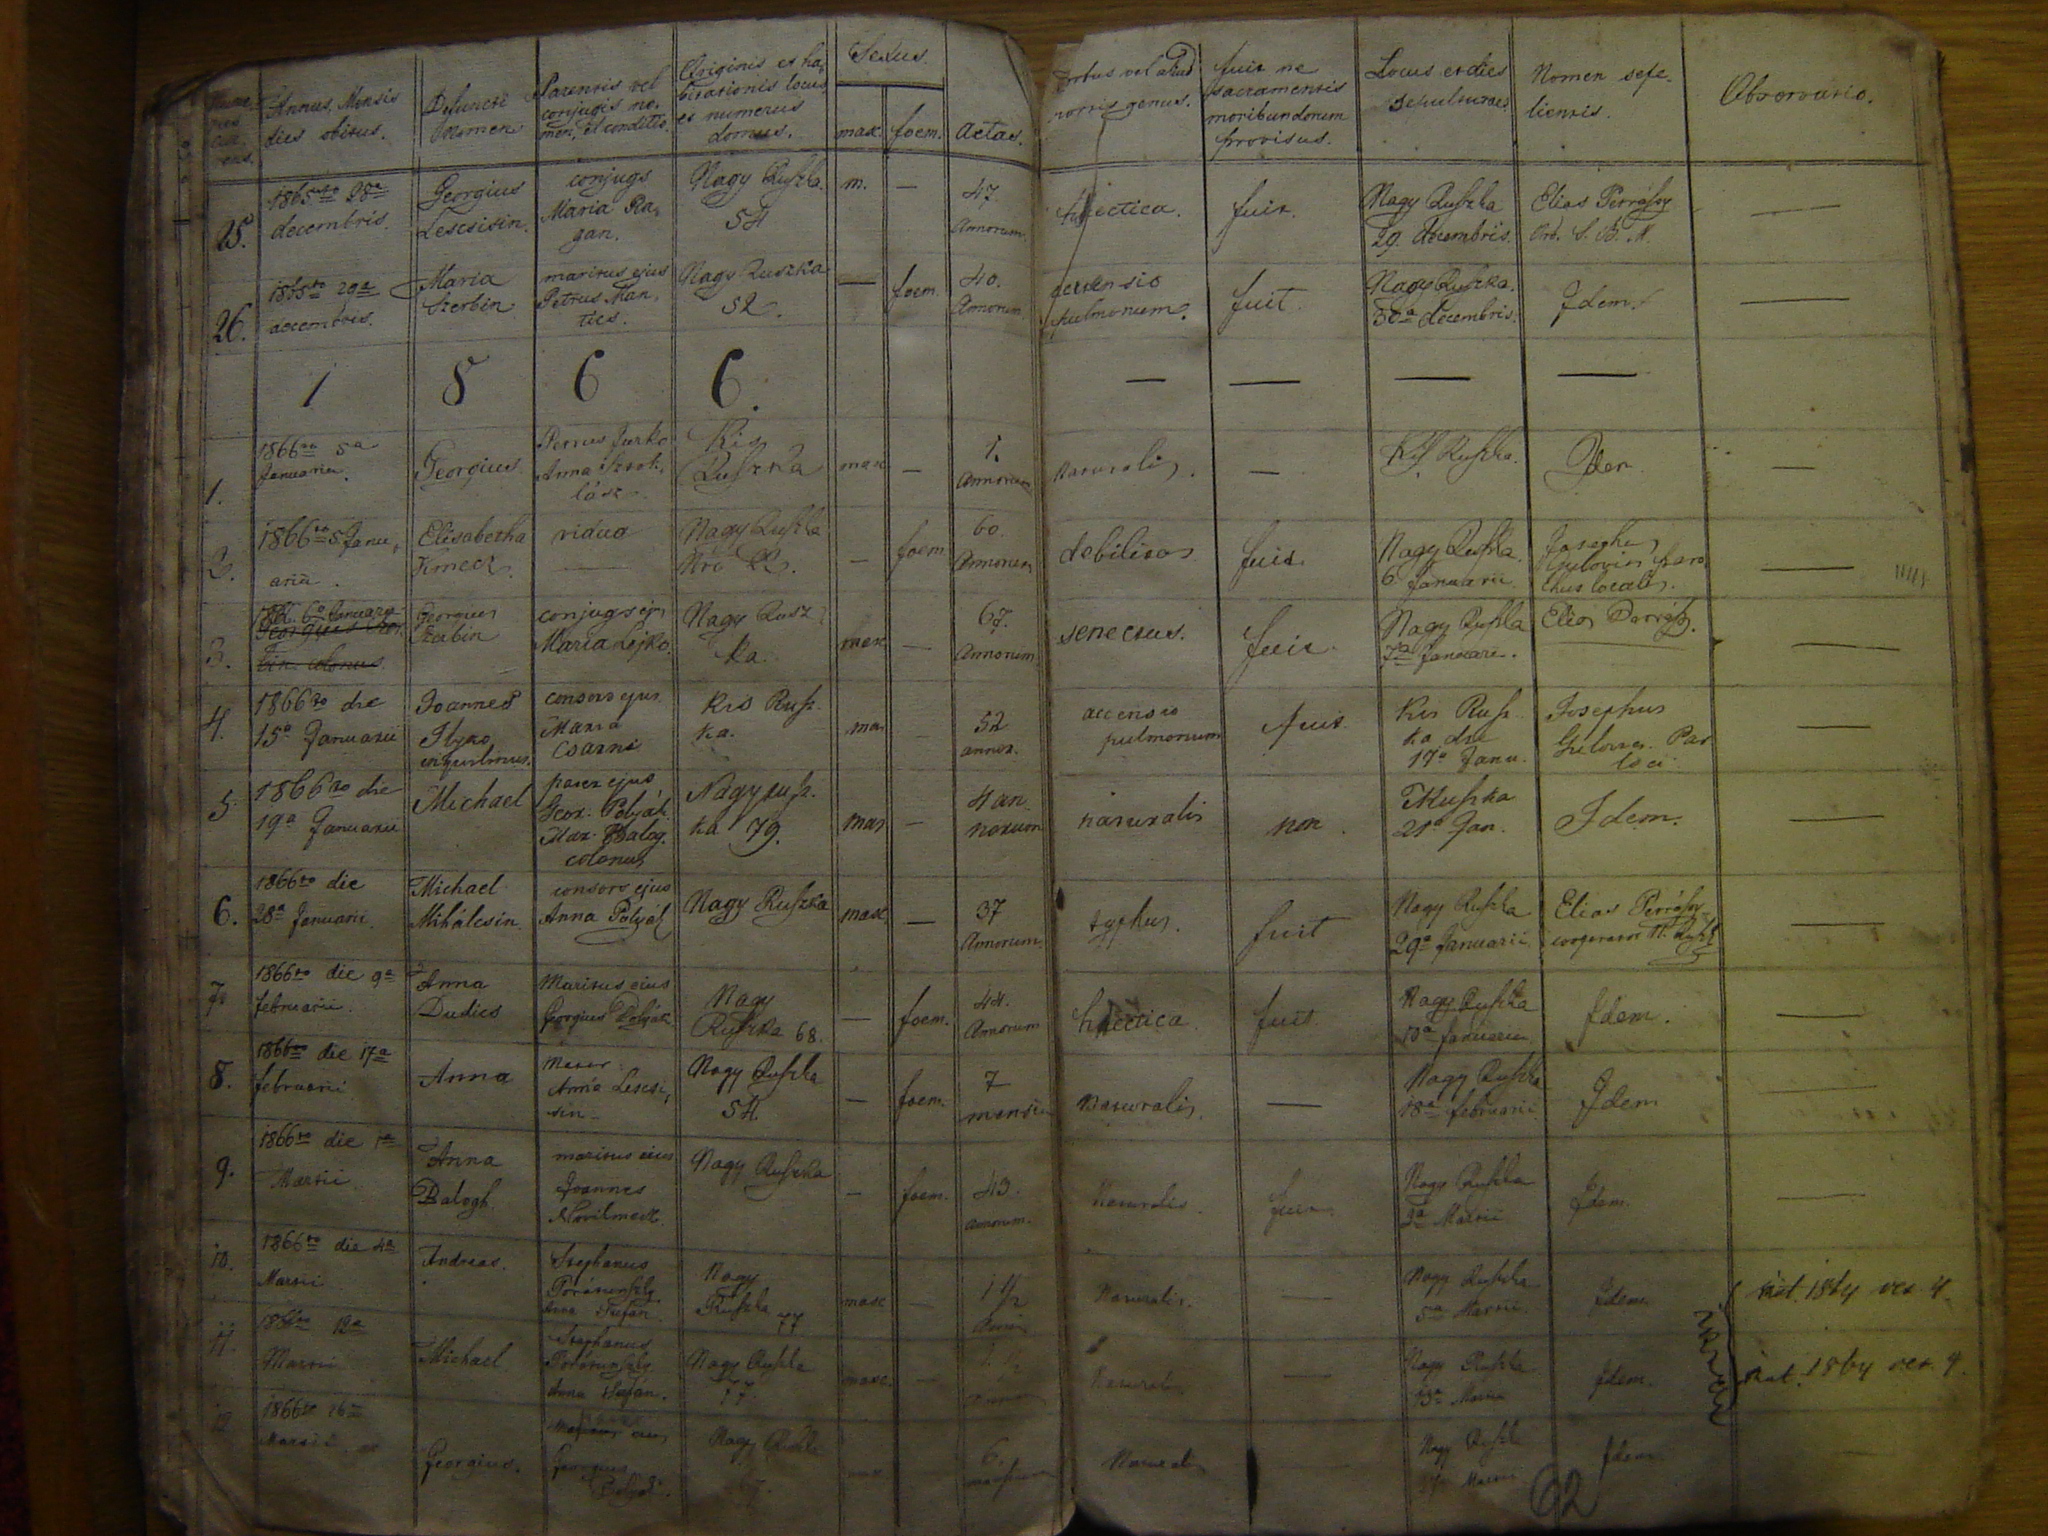 Annus, Mensis
dies obitus.
Defuncti
Nomen
Parentis vel
conjugis no-
men, et conditio.
Originis et ha-
bitationis locus
et numerus
domus.
Sexus.
masc.
foem.
Aetas.
Morbus vel aliud
mortis genus.
fuit ne
sacramentis
moribundorum
provisus.
Locus et dies
sepulturae
Nomen sepe-
lientis.
Observatio.
25.
1865to 28a
decembris.
Georgius
Lescsisin.
conjugs
Maria Ra-
gan.
Nagy Ruszka.
54
m. —
47.
Annorum.
hectica.
fuit.
Nagy Ruszka
29. decembris.
Elias Petrássy
Ord. S. B. M.
26.
1865to 29a
decembris.
Maria
Szerbin
maritus ejus
Petrus Han-
Nagy Ruszka
52.
— foem.
40.
Annorum.
accensio
pulmonum.
fuit.
Nagy Ruszka.
30a decembris.
Idem.
1 8 6 6.
1.
1866to 5a
Januarii.
Georgius
Petrus Jurko
Anna
Kis
Ruszka
masc —
1.
Annorum
Naturalis.
—
Kis Ruszka.
Idem
2.
1866to 5 Janu-
arii.
Elisabetha
Kmecz.
vidua
Nagy Ruszka
Nro
— foem
60.
Annorum
debilitas
fuit
Nagy Ruszka
6 Januarii
Josephus
Gulovics Paro
chus localis.
3.
1866. 6a Januar
Georgius
Szabin
conjugs ejus
Maria Lejko.
Nagy Rusz
ka.
masc —
67.
Annorum
senectus.
fuit.
Nagy Ruszka
7a Januarii.
Elias Petrássy.
4.
1866to die
15a Januarii
Joannes
Ilyko
inquilinus.
consors ejus
Maria
Csarni
Kis Rusz-
ka.
mas
52
annor.
accensio
pulmonum
fuit
Kis Rusz-
ka die
17a Janu.
Josephus
Gulovics Par
loci
5
1866to die
19a Januarii
Michael
pater ejus
Geor. Polyák
Mar. Balog.
colonus
Nagy rusz-
ka 79.
mas —
4 an
norum
naturalis
non.
Ruszka
21a Jan.
Idem.
6.
1866to die
28a Januarii
Michael
Mihálcsin.
consors ejus
Anna Polyák
Nagy Ruszka
masc —
37
Annorum.
typhus.
fuit
Nagy Ruszka
29a Januarii
Elias Petrássy
cooperator N. Ruszk
7.
1866to die 9a
februarii.
Anna
Dudics
Maritus eius
Georgius Polyák
Nagy
Ruszka 68.
— foem.
44.
Annorum
hectica
fuit
Nagy Ruszka
10a Januarii
Idem.
8.
1866to die 17a
februarii
Anna
Mater
Anna Lescsi-
sin
Nagy Ruszka
54.
— foem.
7
mensiu
Naturalis.
—
Nagy Ruszka
18a februarii
Idem
9.
1866to die 1a
Martii.
Anna
Balogh.
maritus eius
Joannes
Nagy Ruszka
— foem.
43.
Annorum.
Naturalis.
fuit
Nagy Ruszka
3a Martii
Idem.
10.
1866to die 4a
Martii
Andreas.
Stephanus
Anna Stefán
Nagy
Ruszka 77
masc —
1 1/2
Naturalis.
—
Nagy Ruszka
5a Martii.
Idem
nat. 1864 oct 4.
11.
1866to 12a
Martii
Michael
Stephanus
Anna Stefán.
Nagy Ruszka
77.
masc. —
Natural
—
Nagy Ruszka
13a Martii
Idem.
nat. 1864 oct. 4.
12
1866to 26
Martii
Georgius.
Georgius
Polyák.
Nagy Ruszka
67.
6.
Naturalis
Nagy Ruszka
Martii
Idem
62